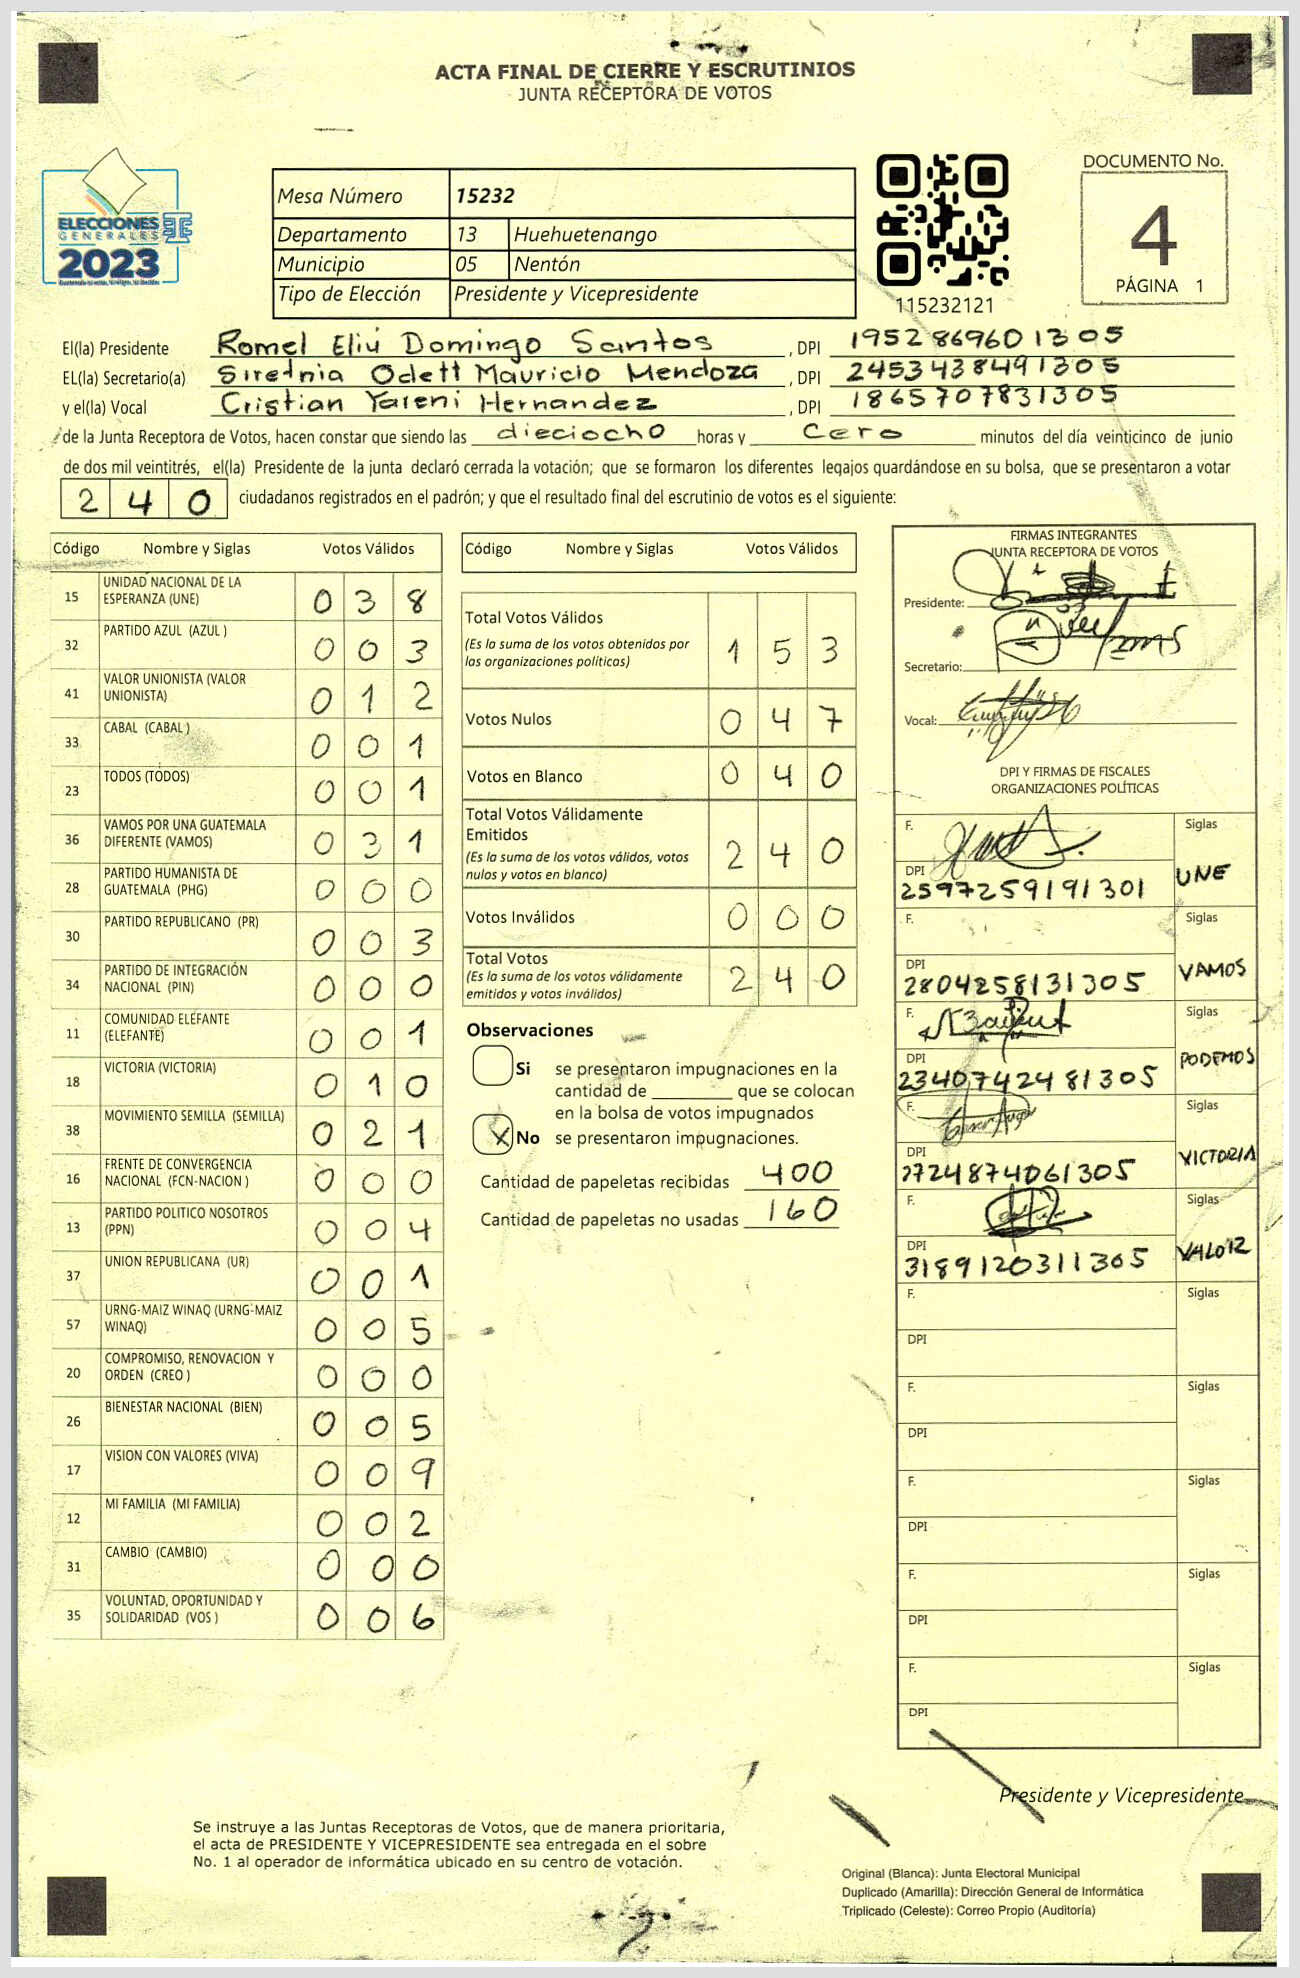 ACTA FINAL DE CIERRE Y ESCRUTINIOS
JUNTA RECEPTORA DE VOTOS
ELECCIONES
GENERALES
2023
Mesa Número 15232
Departamento 13 Huehuetenango
Municipio 05 Nentón
Tipo de Elección Presidente y Vicepresidente
115232121
DOCUMENTO No.
4
PÁGINA 1
El(la) Presidente Romel Eliú Domingo Santos , DPI 1952869601305
EL(la) Secretario(a) Siretnia Odett Mauricio Mendoza , DPI 2453438491305
y el(la) Vocal Cristian Yareni Hernandez , DPI 1865707831305
de la Junta Receptora de Votos, hacen constar que siendo las dieciocho horas y cero minutos del día veinticinco de junio
de dos mil veintitrés, el(la) Presidente de la junta declaró cerrada la votación; que se formaron los diferentes legajos guardándose en su bolsa, que se presentaron a votar
240 ciudadanos registrados en el padrón; y que el resultado final del escrutinio de votos es el siguiente:
Código Nombre y Siglas Votos Válidos
15 UNIDAD NACIONAL DE LA
ESPERANZA (UNE) 0 3 8
32 PARTIDO AZUL (AZUL ) 0 0 3
41 VALOR UNIONISTA (VALOR
UNIONISTA) 0 1 2
33 CABAL (CABAL ) 0 0 1
23 TODOS (TODOS) 0 0 1
36 VAMOS POR UNA GUATEMALA
DIFERENTE (VAMOS) 0 3 1
28 PARTIDO HUMANISTA DE
GUATEMALA (PHG) 0 0 0
30 PARTIDO REPUBLICANO (PR) 0 0 3
34 PARTIDO DE INTEGRACIÓN
NACIONAL (PIN) 0 0 0
11 COMUNIDAD ELEFANTE
(ELEFANTE) 0 0 1
18 VICTORIA (VICTORIA) 0 1 0
38 MOVIMIENTO SEMILLA (SEMILLA) 0 2 1
16 FRENTE DE CONVERGENCIA
NACIONAL (FCN-NACION ) 0 0 0
13 PARTIDO POLITICO NOSOTROS
(PPN) 0 0 4
37 UNION REPUBLICANA (UR) 0 0 1
57 URNG-MAIZ WINAQ (URNG-MAIZ
WINAQ) 0 0 5
20 COMPROMISO, RENOVACION Y
ORDEN (CREO ) 0 0 0
26 BIENESTAR NACIONAL (BIEN) 0 0 5
17 VISION CON VALORES (VIVA) 0 0 9
12 MI FAMILIA (MI FAMILIA) 0 0 2
31 CAMBIO (CAMBIO) 0 0 0
35 VOLUNTAD, OPORTUNIDAD Y
SOLIDARIDAD (VOS ) 0 0 6
Código Nombre y Siglas Votos Válidos
Total Votos Válidos
(Es la suma de los votos obtenidos por
las organizaciones políticas) 1 5 3
Votos Nulos 0 4 7
Votos en Blanco 0 4 0
Total Votos Válidamente
Emitidos
(Es la suma de los votos válidos, votos
nulos y votos en blanco) 2 4 0
Votos Inválidos 0 0 0
Total Votos
(Es la suma de los votos válidamente
emitidos y votos inválidos) 2 4 0
Observaciones
Si se presentaron impugnaciones en la
cantidad de ________ que se colocan
en la bolsa de votos impugnados
X No se presentaron impugnaciones.
Cantidad de papeletas recibidas 400
Cantidad de papeletas no usadas 160
FIRMAS INTEGRANTES
JUNTA RECEPTORA DE VOTOS
Presidente:
Secretario:
Vocal:
DPI Y FIRMAS DE FISCALES
ORGANIZACIONES POLÍTICAS
F. Siglas
DPI UNE
2597259191301
F. Siglas
DPI VAMOS
2804258131305
F. Siglas
DPI PODEMOS
2340742481305
F. Siglas
DPI VICTORIA
2724874061305
F. Siglas
DPI VALOR
3189120311305
F. Siglas
DPI
F. Siglas
DPI
F. Siglas
DPI
F. Siglas
DPI
F. Siglas
DPI
Presidente y Vicepresidente
Se instruye a las Juntas Receptoras de Votos, que de manera prioritaria,
el acta de PRESIDENTE Y VICEPRESIDENTE sea entregada en el sobre
No. 1 al operador de informática ubicado en su centro de votación.
Original (Blanca): Junta Electoral Municipal
Duplicado (Amarilla): Dirección General de Informática
Triplicado (Celeste): Correo Propio (Auditoría)